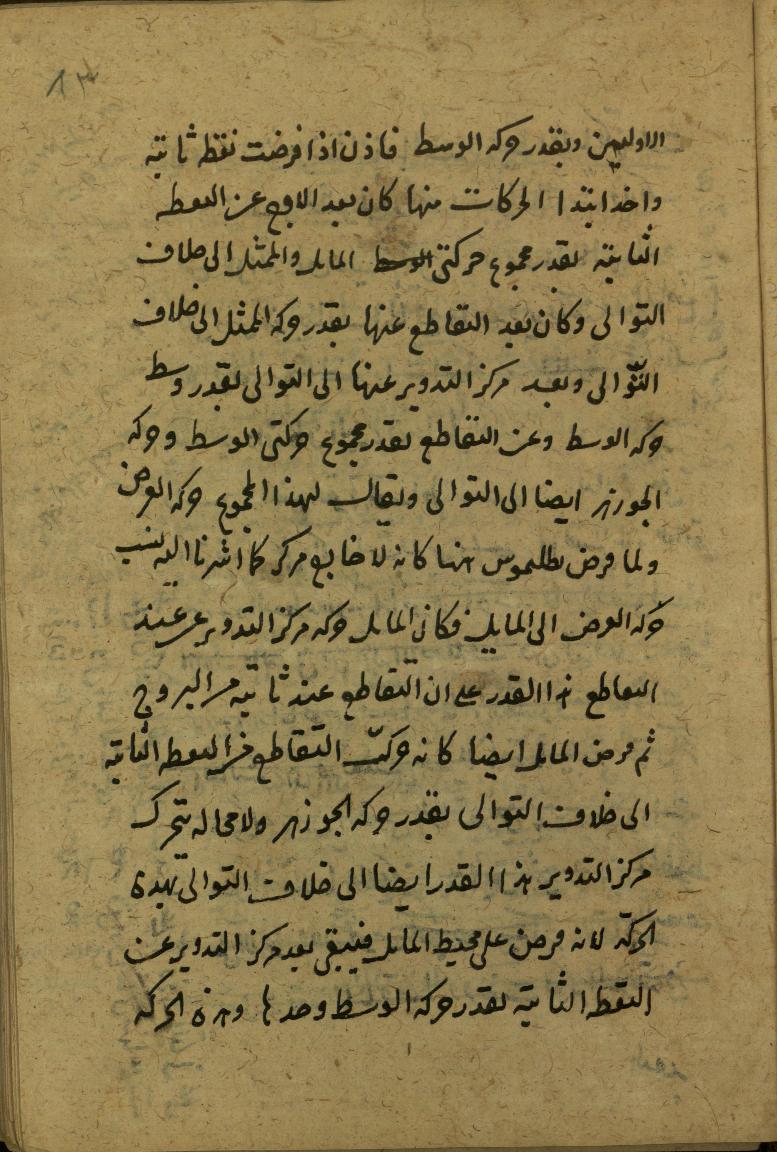 ٨٣
الاوليين وبقدر حركه الوسط فاذن اذا فرضت نقطه ثابته
واخذ ابتدا الحركات منها كان بعد الاوج عن النقطه
الثابته بقدر مجموع حركتى الوسط المايل والممثل الى خلاف
التوالى وكان بعد التقاطع عنها بقدر حركه الممثل الى خلاف
التوالى وبعد مركز التدوير عنها الى التوالى بقدر وسط
حركه الوسط وعن التقاطع بقدر مجموع حركتى الوسط وحركه
الجوزهر ايضا الى التوالى ويقال لهذا المجموع حركه العرض
ولما فرض بطلميوس انها كانه لا خارج مركز كما اشرنا اليه نسب
حركه العرض الى المايل فكان المايل حركه مركز التدوير عن عند
التقاطع هذا القدر على ان التقاطع عند ثابته من البروج
ثم فرض المايل ايضا كانه حركت التقاطع من النقطه الثابته
الى خلاف التوالى بقدر حركه الجوزهر ولا محاله يتحرك
مركز التدوير هذا القدر ايضا الى خلاف التوالى بهذه
الحركه لانه فرض على محيط المايل فيبقى بعد مركز التدوير عن
النقطه الثابته بقدر حركه الوسط وحدها وهذه الحركه